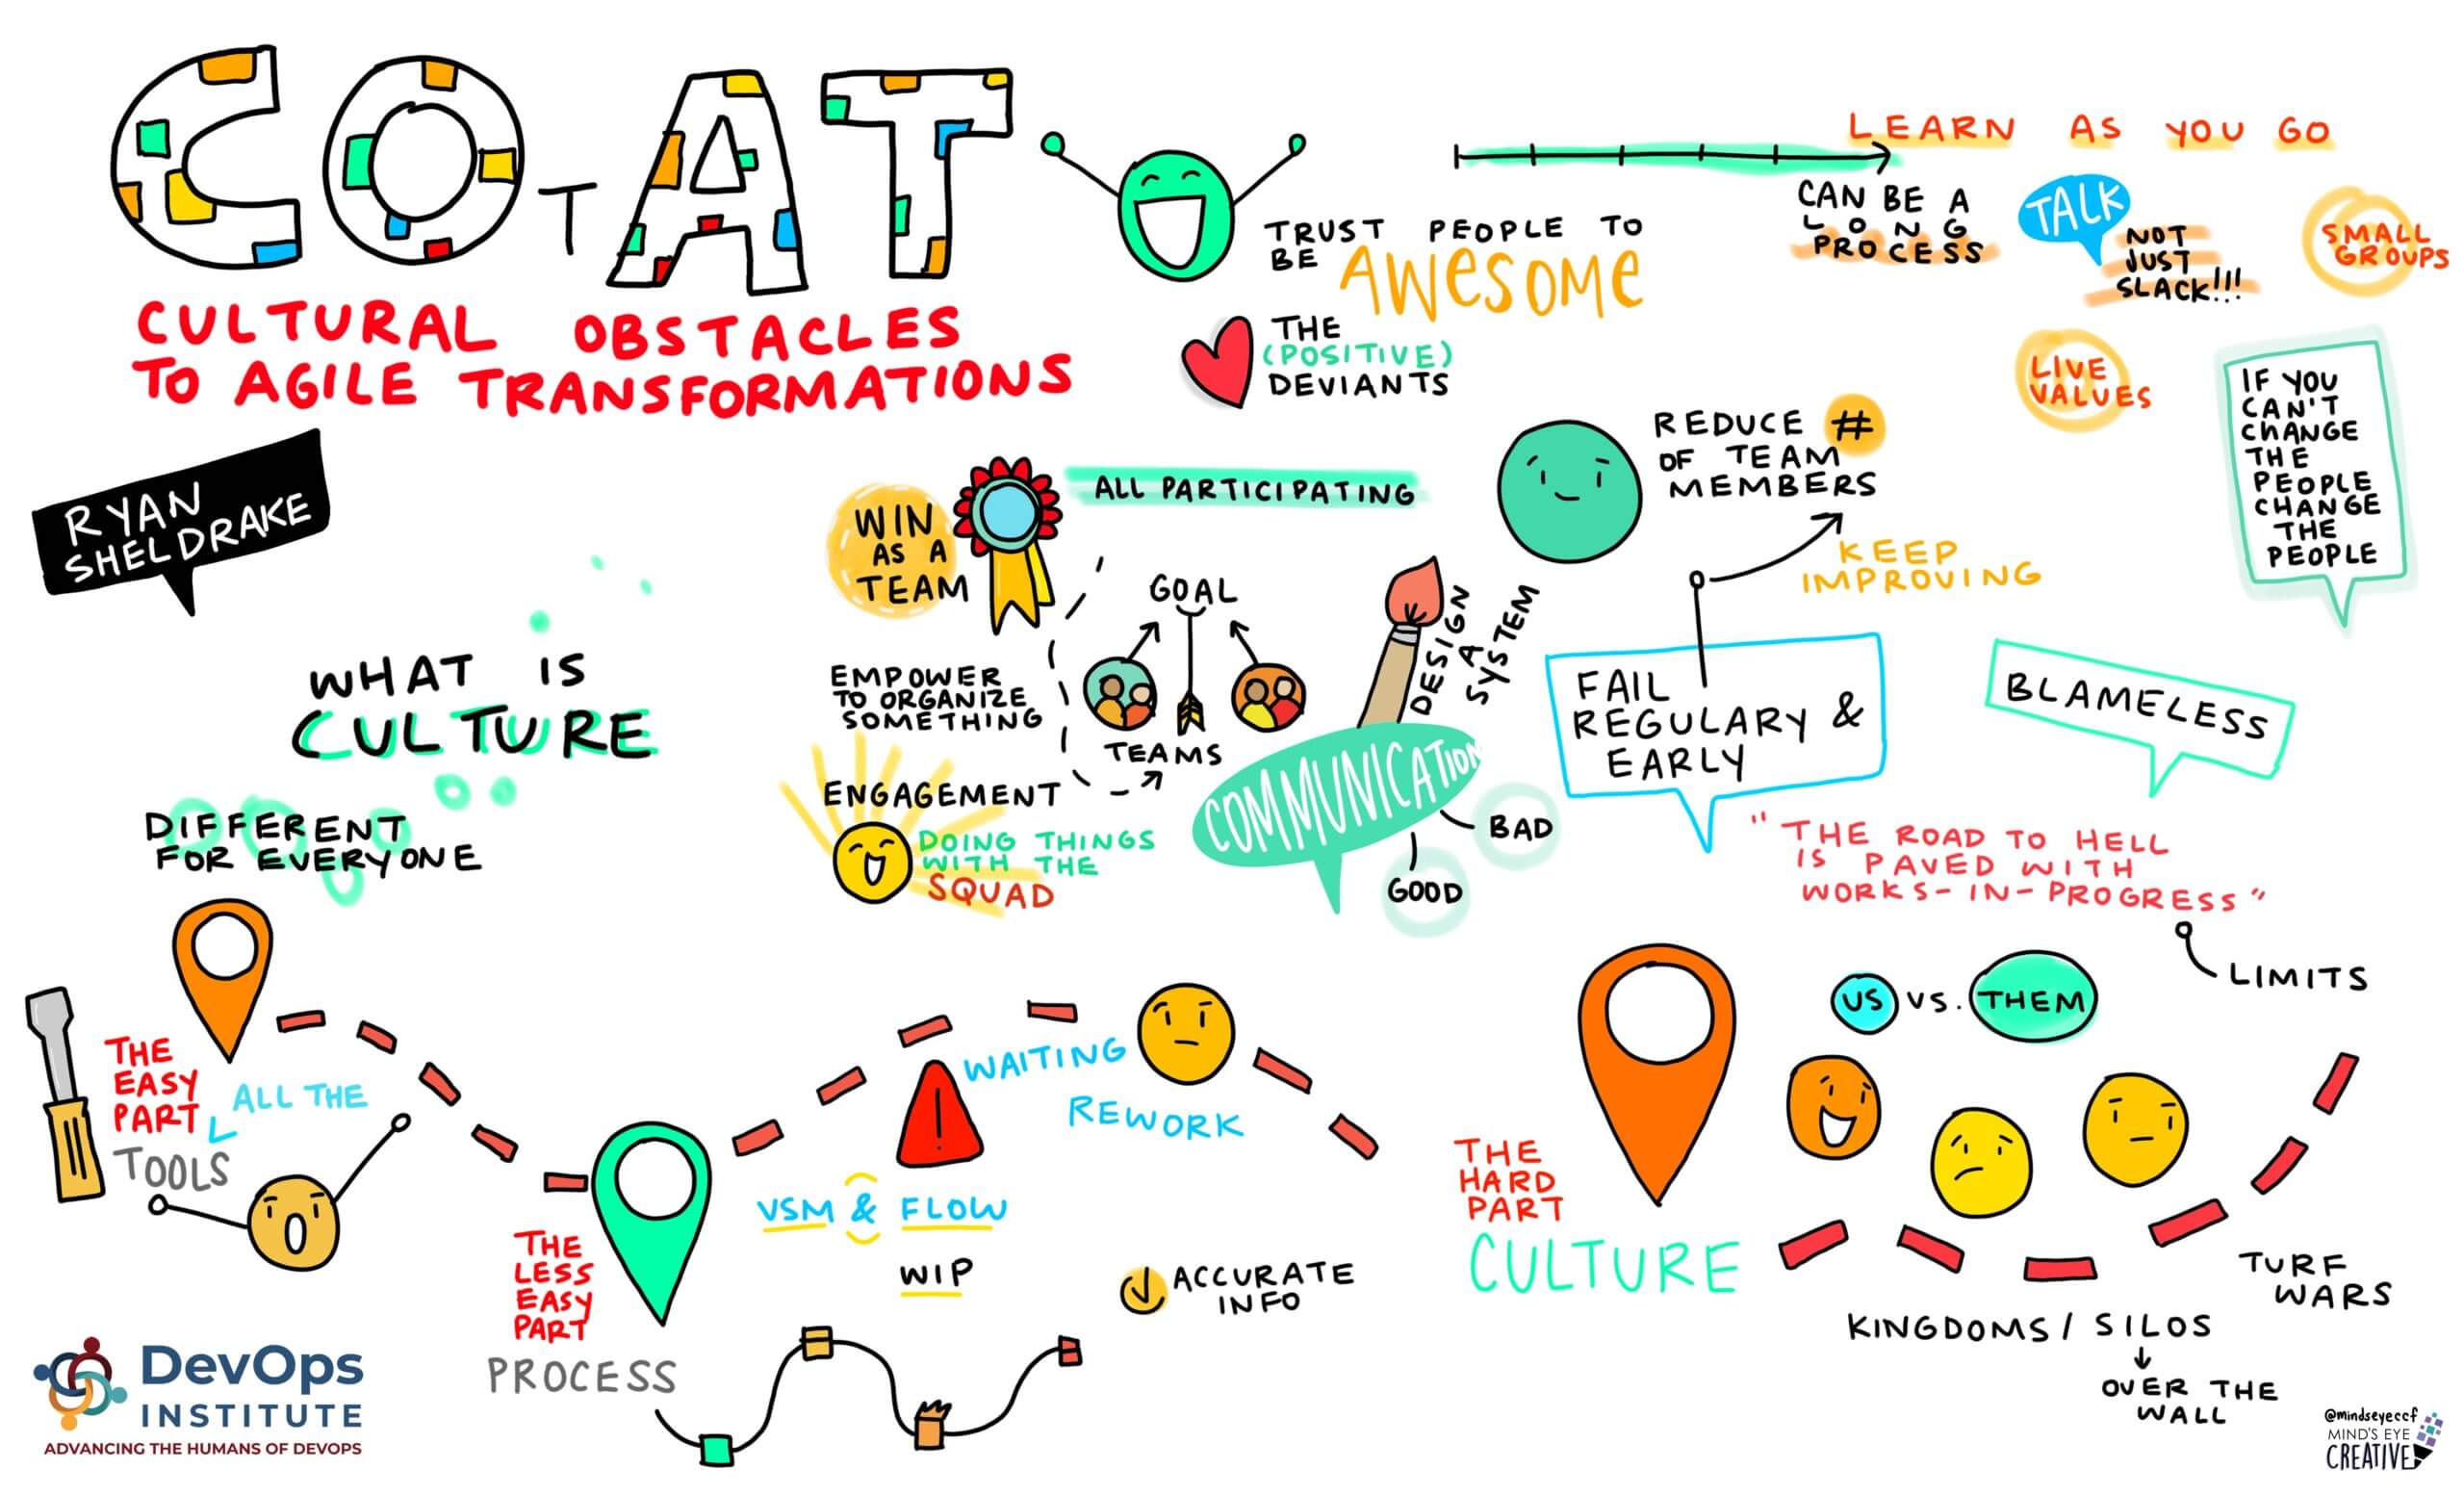 COTAT
CULTURAL OBSTACLES
TO AGILE TRANSFORMATIONS
RYAN
SHELDRAKE
WHAT IS
CULTURE
DIFFERENT
FOR EVERYONE
TRUST PEOPLE TO
BE AWESOME
THE
(POSITIVE)
DEVIANTS
LEARN AS YOU GO
CAN BE A
LONG
PROCESS
TALK
NOT
JUST
SLACK!!!
SMALL
GROUPS
LIVE
VALUES
IF YOU
CAN'T
CHANGE
THE
PEOPLE
CHANGE
THE
PEOPLE
WIN
AS A
TEAM
ALL PARTICIPATING
REDUCE #
OF TEAM
MEMBERS
KEEP
IMPROVING
EMPOWER
TO ORGANIZE
SOMETHING
GOAL
TEAMS
ENGAGEMENT
DOING THINGS
WITH THE
SQUAD
DESIGN
A
SYSTEM
COMMUNICATION
BAD
GOOD
FAIL
REGULARY &
EARLY
BLAMELESS
"THE ROAD TO HELL
IS PAVED WITH
WORKS-IN-PROGRESS"
LIMITS
THE
EASY
PART
ALL THE
TOOLS
THE
LESS
EASY
PART
PROCESS
WAITING
REWORK
VSM & FLOW
WIP
ACCURATE
INFO
THE
HARD
PART
CULTURE
US VS. THEM
TURF
WARS
KINGDOMS / SILOS
OVER THE
WALL
DevOps
INSTITUTE
ADVANCING THE HUMANS OF DEVOPS
@mindseyeccf
MIND'S EYE
CREATIVE